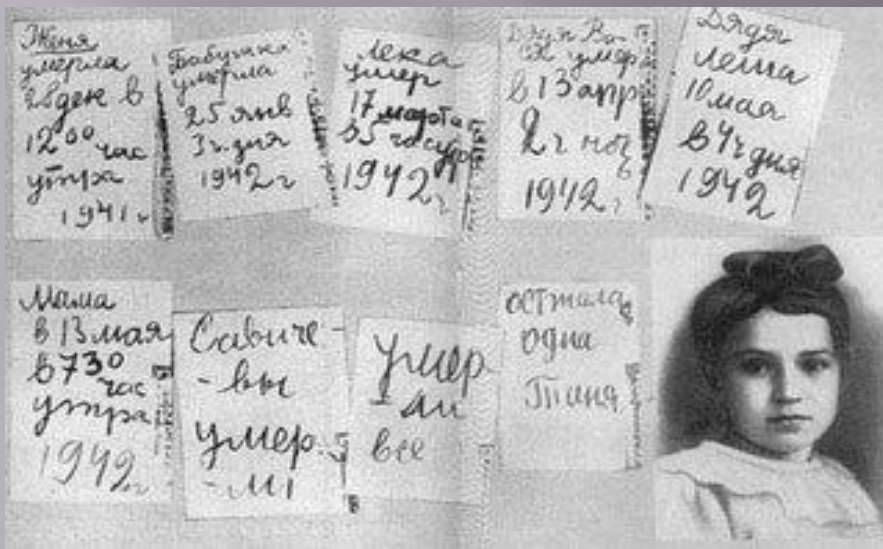 Женя
умерла
28 дек в
12 00 час
утра
1941 г
Бабушка
умерла
25 янв
3 ч. дня
1942 г
Лека
умер
17 марта
в 5 час утр
1942 г
Дядя Ва
ся умер
в 13 апр
2 ч ноч
1942 г
Дядя
Леша
10 мая
в 4 ч дня
1942
Мама
в 13 мая
в 7 30
час
утра
1942 г
Савиче
-вы
умер
-ли
умер
-ли
все
осталась
одна
Таня